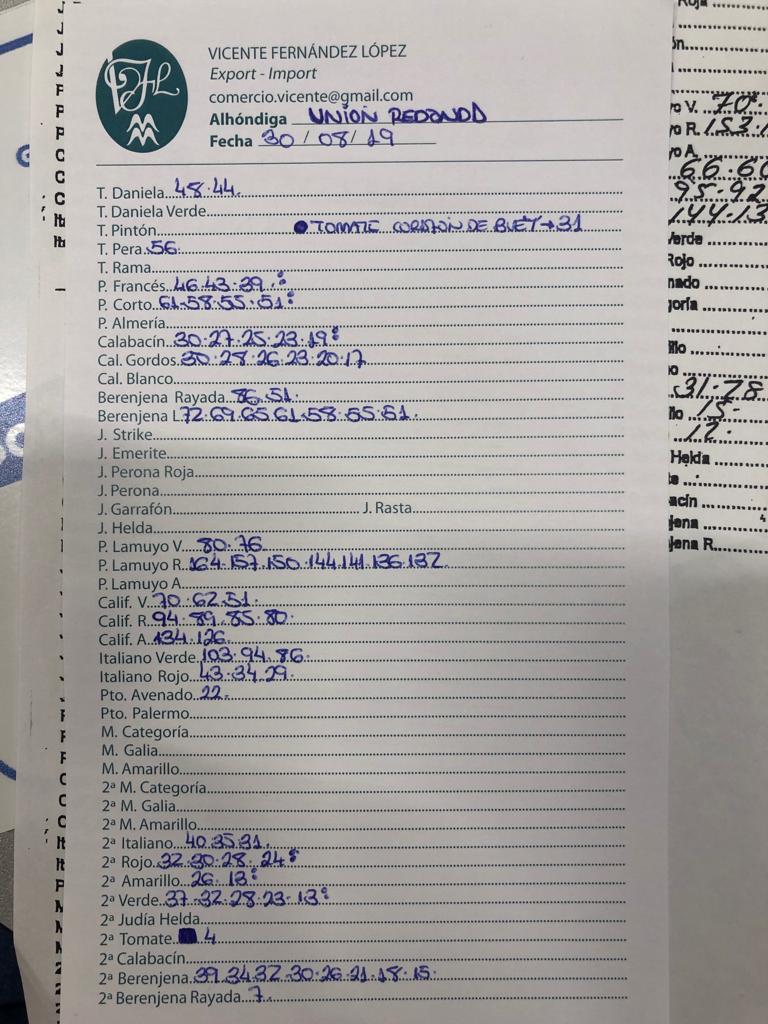 VICENTE FERNÁNDEZ LÓPEZ
Export - Import
comercio.vicente@gmail.com
Alhóndiga UNION REDONDA
Fecha 30 / 08 / 19
T. Daniela 48.44.
T. Daniela Verde
T. Pintón TOMATE CORAZON DE BUEY → 31
T. Pera 56
T. Rama
P. Francés 46.43.39.
P. Corto 61.58.55.51
P. Almería
Calabacín 30.27.25.23.19
Cal. Gordos 30.28.26.23.20.17
Cal. Blanco
Berenjena Rayada 86.51.
Berenjena L 72.69.65.61.58.55.51.
J. Strike
J. Emerite
J. Perona Roja
J. Perona
J. Garrafón J. Rasta
J. Helda
P. Lamuyo V. 80.76
P. Lamuyo R. 164.157.150.144.141.136.132
P. Lamuyo A.
Calif. V. 70.62.51.
Calif. R. 94.89.85.80.
Calif. A. 134.126
Italiano Verde 103.94.86.
Italiano Rojo 43.34.29.
Pto. Avenado 22.
Pto. Palermo
M. Categoría
M. Galia
M. Amarillo
2ª M. Categoría
2ª M. Galia
2ª M. Amarillo
2ª Italiano 40.35.31
2ª Rojo 32.30.28.24
2ª Amarillo 26.13
2ª Verde 37.32.28.23.13
2ª Judía Helda
2ª Tomate 4
2ª Calabacín
2ª Berenjena 39.34.32.30.26.21.18.15.
2ª Berenjena Rayada 7.